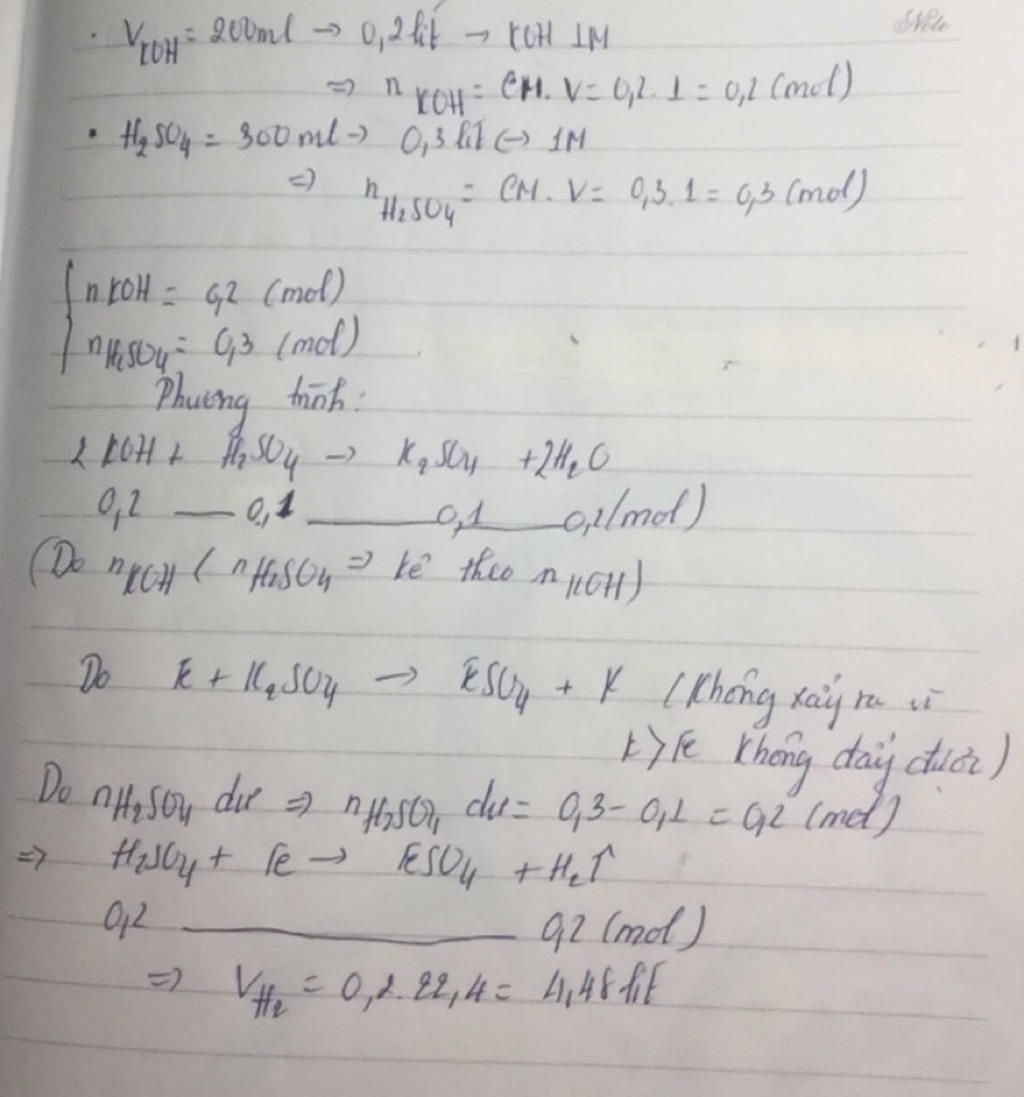 Note
• V_KOH = 200ml → 0,2 lít → KOH 1M
⇒ n_KOH = CM. V = 0,2. 1 = 0,2 (mol)
• H₂SO₄ = 300 ml → 0,3 lít ↔ 1M
⇒ n_H₂SO₄ = CM. V = 0,3. 1 = 0,3 (mol)
{ n KOH = 0,2 (mol)
n H₂SO₄ = 0,3 (mol)
Phương trình:
2 KOH + H₂SO₄ → K₂SO₄ + 2H₂O
0,2 — 0,1 — 0,1 — 0,2 (mol)
(Do n_KOH < n_H₂SO₄ ⇒ kê theo n_KOH)
Do Fe + K₂SO₄ → FeSO₄ + K (Không xảy ra vì
K > Fe không đẩy được)
Do n_H₂SO₄ dư ⇒ n_H₂SO₄ dư = 0,3 - 0,1 = 0,2 (mol)
⇒ H₂SO₄ + Fe → FeSO₄ + H₂↑
0,2 — 0,2 (mol)
⇒ V_H₂ = 0,2. 22,4 = 4,48 lít